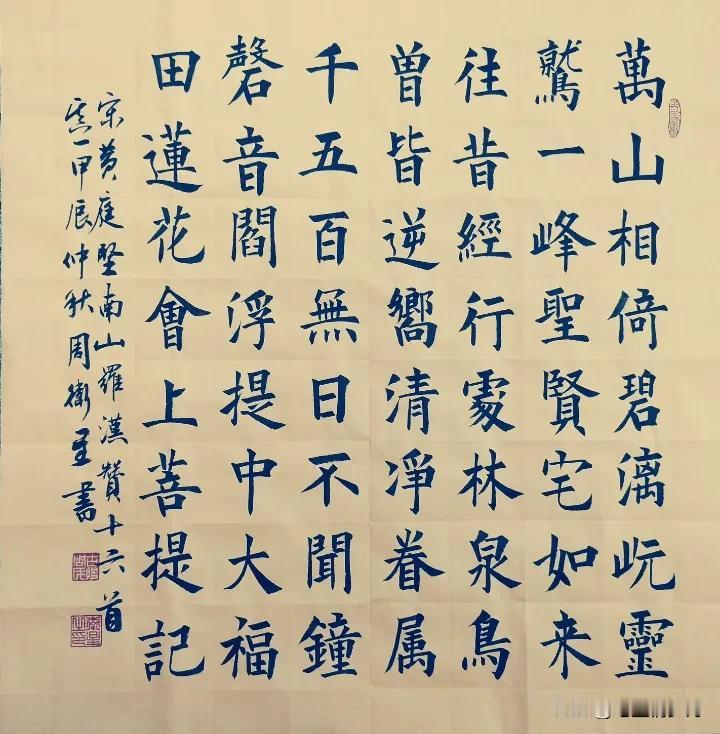 萬山相倚碧漓岏靈
鷲一峰聖賢宅如来
往昔經行處林泉鳥
曽皆逆嚮清凈眷属
千五百無日不聞鐘
磬音閻浮提中大福
田蓮花會上菩提記
宋黄庭坚南山羅漢贊十六首
其一甲辰仲秋周衛星書